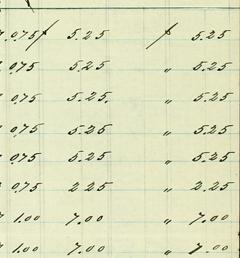 0.75 5.25 5.25
0.75 5.25 " 5.25
0.75 5.25. " 5.25
0.75 5.25 " 5.25
0.75 5.25 " 5.25
0.75 2.25 " 2.25
1.00 7.00 " 7.00
1.00 7.00 " 7.00